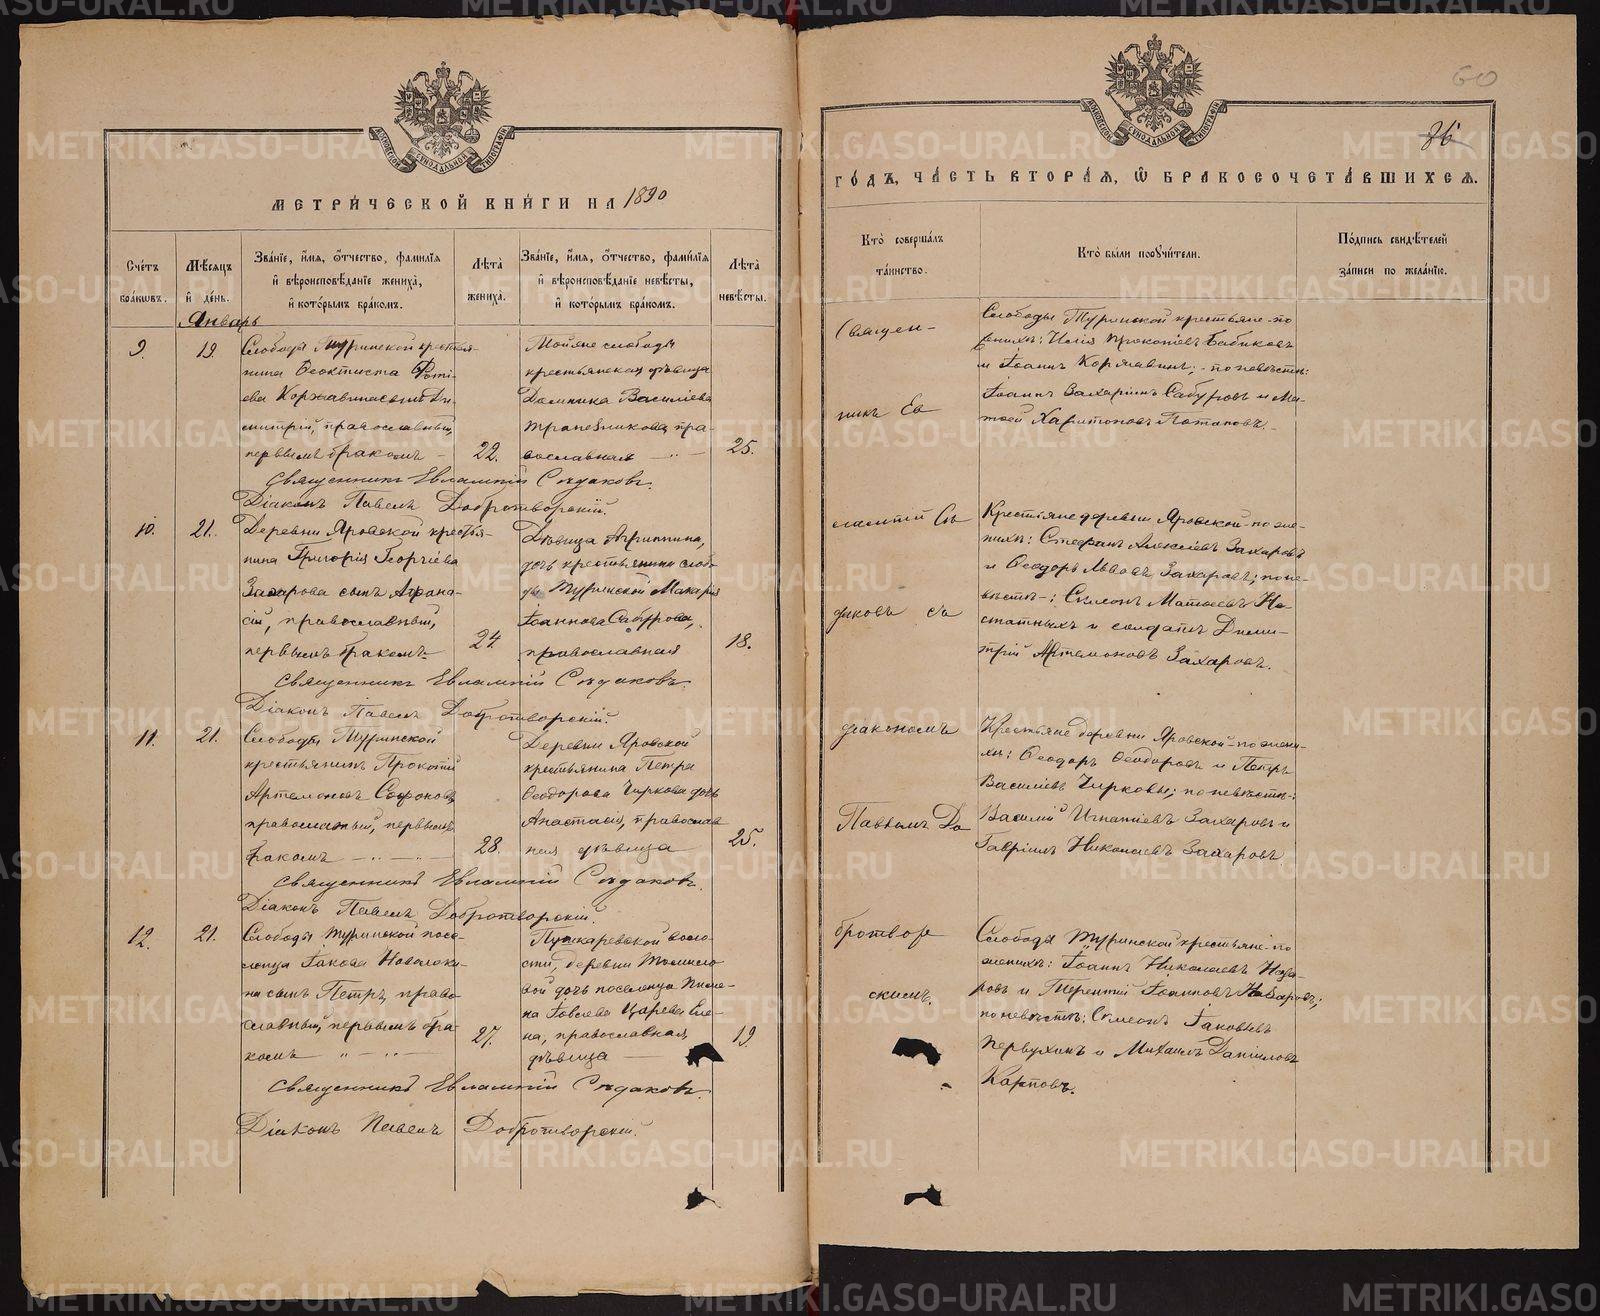 60
86
МЕТРИ́ЧЕСКОЙ КНИ́ГИ НА 1890
ГО́ДЪ, ЧА́СТЬ ВТОРА́Я, Ѡ҆ БРАКОСОЧЕТА́ВШИХСЯ.
Сче́тъ бра́ковъ.
Мѣ́сяцъ и҆ де́нь.
Зва́нїе, и҆́мя, ѻ҆́тчество, фамѝлїя
и҆ вѣроисповѣ́данїе жениха̀,
и҆ кото́рымъ бра́комъ.
Лѣ́та жениха̀.
Зва́нїе, и҆́мя, ѻ҆́тчество, фами́лїя
и҆ вѣроисповѣ́данїе невѣ́сты,
и҆ кото́рымъ бра́комъ.
Лѣ́та невѣ́сты.
Кто̀ соверша́лъ
та́инство.
Кто̀ бы́ли поручи́тели.
По́дпись свидѣ́телей
за́писи по жела́нїю.
Январь
9.
19.
Слободы Туринской крестья-
нина Ѳеоктиста Фоти-
ева Коржавина сынъ Ди-
митрій, православный,
первымъ бракомъ
22.
Тойже слободы
крестьянская дѣвица
Домника Василіева
Трапезникова, пра-
вославная
25.
Священникъ Евлампій Сѣдаковъ.
Діаконъ Павелъ Добротворскій.
10.
21.
Деревни Яровской крестья-
нина Григорія Георгіева
Захарова сынъ Афана-
сій, православный,
первымъ бракомъ
24.
Дѣвица Агриппина,
дочь крестьянина слобо-
ды Туринской Макарія
Іоаннова Сабурова,
православная
18.
Священникъ Евлампій Сѣдаковъ.
Діаконъ Павелъ Добротворскій.
11.
21.
Слободы Туринской
крестьянинъ Прокопій
Артемоновъ Софоновъ,
православный, первымъ
бракомъ
28.
Деревни Яровской
крестьянина Петра
Ѳеодорова Чиркова дочь
Анастасія, православ
ная дѣвица
25.
Священникъ Евлампій Сѣдаковъ.
Діаконъ Павелъ Добротворскій.
12.
21.
Слободы Туринской посе-
ленца Іакова
на сынъ Петръ, право-
славный, первымъ бра-
комъ
27.
Пушкаревской воло-
сти, деревни
вой дочь поселенца Пиме-
на Царева Еле-
на, православная,
дѣвица
19.
Священникъ Евлампій Сѣдаковъ.
Діаконъ Павелъ Добротворскій.
Священ-
никъ Ев
лампій Сѣ
даковъ съ
діакономъ
Павломъ До
бротвор
скимъ.
Слободы Туринской крестьяне по
женихѣ: Илія Прокопіевъ Бабиковъ
и Іоаннъ Коржавинъ; по невѣстѣ:
Іоаннъ Захаріинъ Сабуровъ и Ма-
твей Харитоновъ Потаповъ.
Крестьяне деревни Яровской по же-
нихѣ: Стефанъ Алексіевъ Захаровъ
и Ѳеодоръ Львовъ Захаровъ; по не-
вѣстѣ: Симеонъ Матѳеевъ
и солдатъ Дими-
трій Артемоновъ Захаровъ.
Крестьяне деревни Яровской по жени-
хѣ: Ѳеодоръ Ѳеодоровъ и Петръ
Василіевъ Чирковы; по невѣстѣ:
Василій Игнатіевъ Захаровъ и
Гавріилъ Николаевъ Захаровъ.
Слободы Туринской крестьяне по
женихѣ: Іоаннъ Николаевъ Наза-
ровъ и Терентій Іоанновъ Назаровъ;
по невѣстѣ: Симеонъ Іаковлевъ
Первухинъ и Михаилъ Даніиловъ
Карповъ.
METRIKI.GASO-URAL.RU